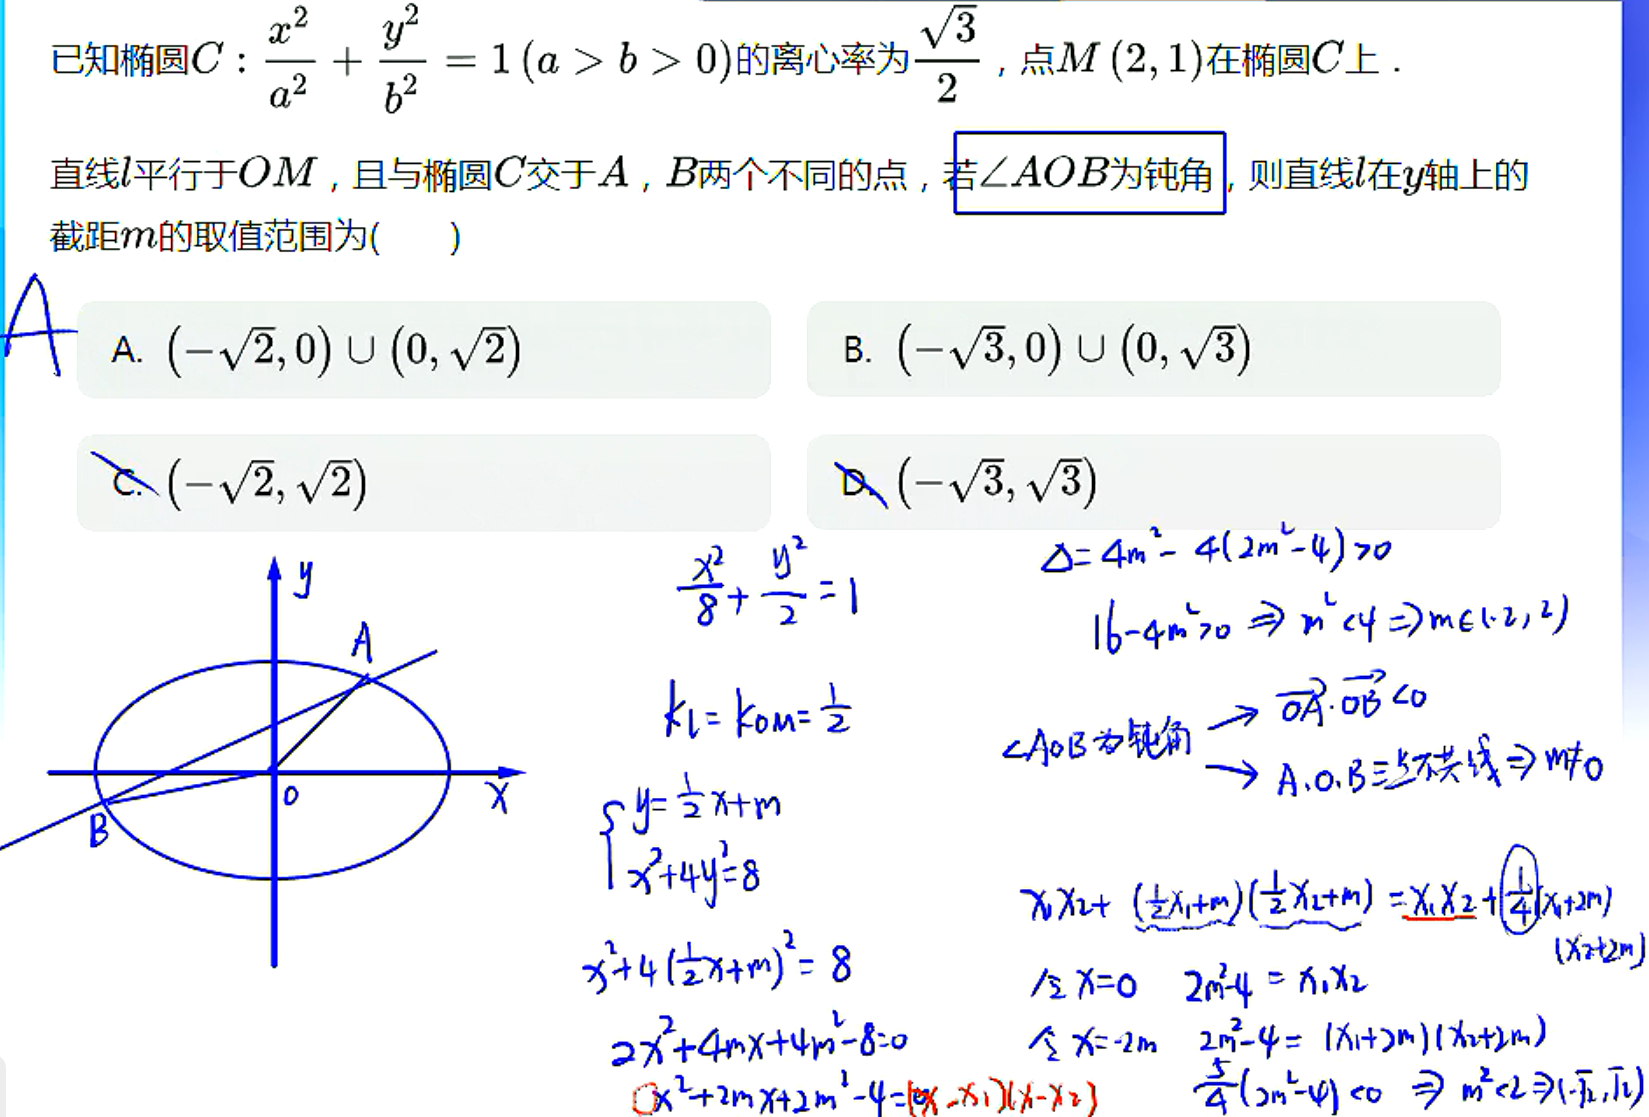 已知椭圆C : x²/a² + y²/b² = 1 (a > b > 0)的离心率为√3/2 , 点M (2, 1)在椭圆C上 .
直线l平行于OM , 且与椭圆C交于A , B两个不同的点 , 若∠AOB为钝角 , 则直线l在y轴上的
截距m的取值范围为( )
A
A. (−√2, 0) ∪ (0, √2)
B. (−√3, 0) ∪ (0, √3)
C. (−√2, √2)
D. (−√3, √3)
y
A
O
x
B
x²/8 + y²/2 = 1
k_l = k_OM = 1/2
{ y = 1/2 x + m
x² + 4y² = 8
x² + 4(1/2 x + m)² = 8
2x² + 4mx + 4m² − 8 = 0
x² + 2mx + 2m² − 4 = (x − x₁)(x − x₂)
Δ = 4m² − 4(2m² − 4) > 0
16 − 4m² > 0 ⇒ m² < 4 ⇒ m ∈ (−2, 2)
∠AOB为钝角 → OA · OB < 0
→ A.O.B三点不共线 ⇒ m ≠ 0
x₁x₂ + (1/2 x₁ + m)(1/2 x₂ + m) = x₁x₂ + 1/4 (x₁ + 2m)
(x₂ + 2m)
令 x = 0 2m² − 4 = x₁x₂
令 x = −2m 2m² − 4 = (x₁ + 2m)(x₂ + 2m)
5/4 (2m² − 4) < 0 ⇒ m² < 2 ⇒ (−√2, √2)